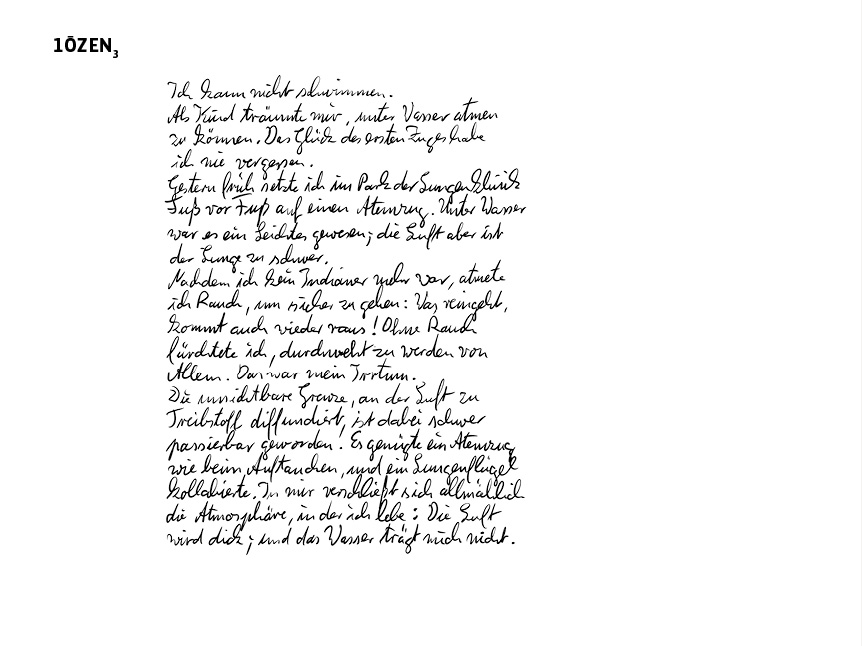 1ŌZEN3
Ich kann nicht schwimmen.
Als Kind träumte mir, unter Wasser atmen
zu können. Das Glück des ersten Zuges habe
ich nie vergessen.
Gestern früh setzte ich im Park der Lungenklinik
Fuß vor Fuß auf einen Atemzug. Unter Wasser
war es ein Leichtes gewesen; die Luft aber ist
der Lunge zu schwer.
Nachdem ich kein Indianer mehr war, atmete
ich Rauch, um sicher zu gehen: Was reingeht,
kommt auch wieder raus! Ohne Rauch
fürchtete ich, durchweht zu werden von
Allem. Das war mein Irrtum.
Die unsichtbare Grenze, an der Luft zu
Treibstoff diffundiert, ist dabei schwer
passierbar geworden. Es genügte ein Atemzug
wie beim Auftauchen, und ein Lungenflügel
kollabierte. In mir verschließt sich allmählich
die Atmosphäre, in der ich lebe: Die Luft
wird dick; und das Wasser trägt mich nicht.